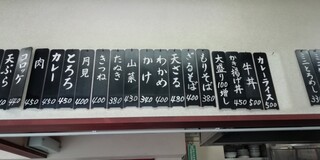 カレーライス 500
牛丼 500
かき揚げ丼 450
大盛り100増し
もりそば 380
ざるそば 400
天ざる
わかめ 400
かけ 340
山菜 400
たぬき 380
きつね
月見 400
とろろ 450
カレー 450
肉 430
コロッケ 430
天ぷら